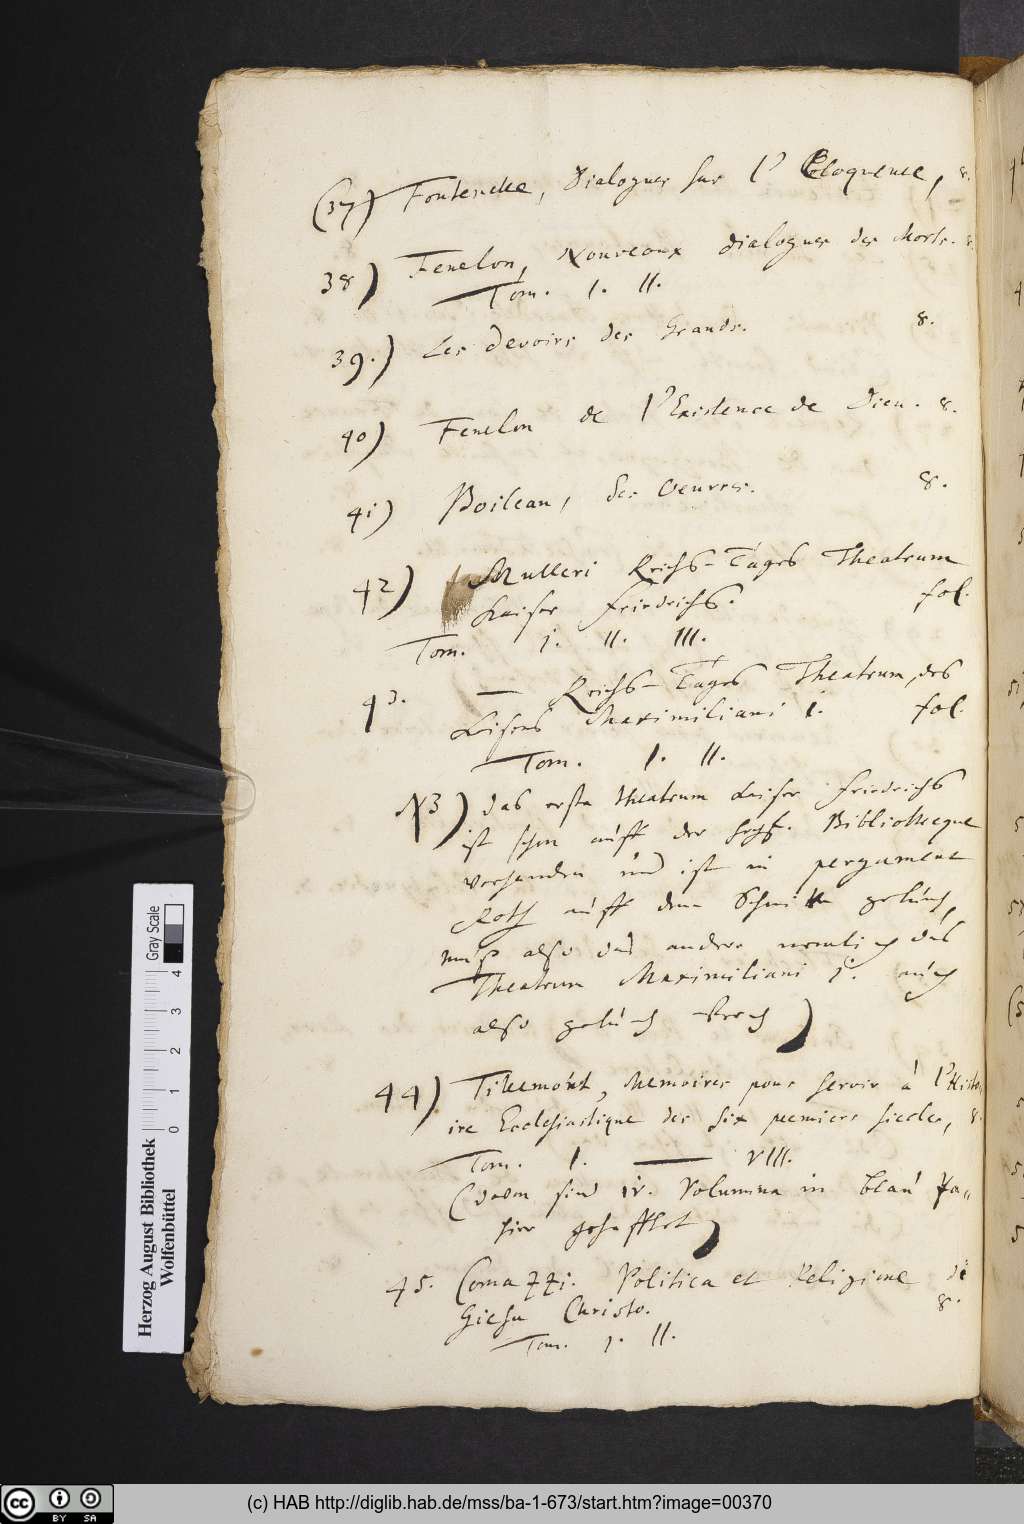 (37) Fontenelle, Dialogues sur l' Eloquence, 8.
38) Fenelon, Nouveaux dialogues des Morts. 8.
Tom. I. II.
39.) Les Devoirs des Grands. 8.
40) Fenelon de l'Existence de Dieu. 8.
41) Boileau, ses Oeuvres. 8.
42) Mulleri Reichs-Tags Theatrum
Kaiser Friedrichs. fol.
Tom. I. II. III.
43. — Reichs-Tags Theatrum, des
Kaisers Maximiliani I. fol.
Tom. I. II.
NB) das erste Theatrum Kaiser Friedrichs
ist schon auff der Bibliotheque
vorhanden und ist in pergament
Roth auff dem Schnitte
muß also das andere nemlich das
Theatrum Maximiliani I. auch
also
44) Tillemont, Memoires pour servir à l'Histo,
ire Ecclesiastique des six premiers siecles, 8.
Tom. I. — VIII.
(davon sind IV. Volumina in blau Pa„
pier gehefftet)
45. Comazzi. Politica et Religione di
Giesu Christo. 8.
Tom. I. II.
Herzog August Bibliothek
Wolfenbüttel
Gray Scale
0 1 2 3 4
(c) HAB http://diglib.hab.de/mss/ba-1-673/start.htm?image=00370
cc BY SA